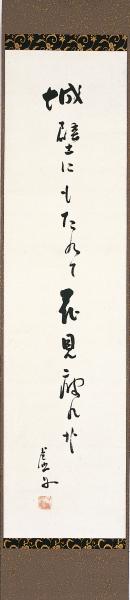 城壁にもたれて花見疲れ哉
虚子